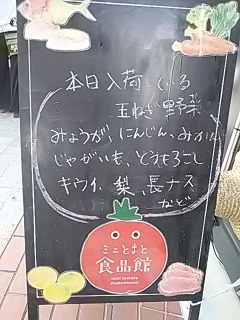 本日入荷している
玉ねぎ野菜
みょうが、にんじん、みかん
じゃがいも、とうもろこし
キウイ、梨、長ナス
など
ミニとまと
食品館